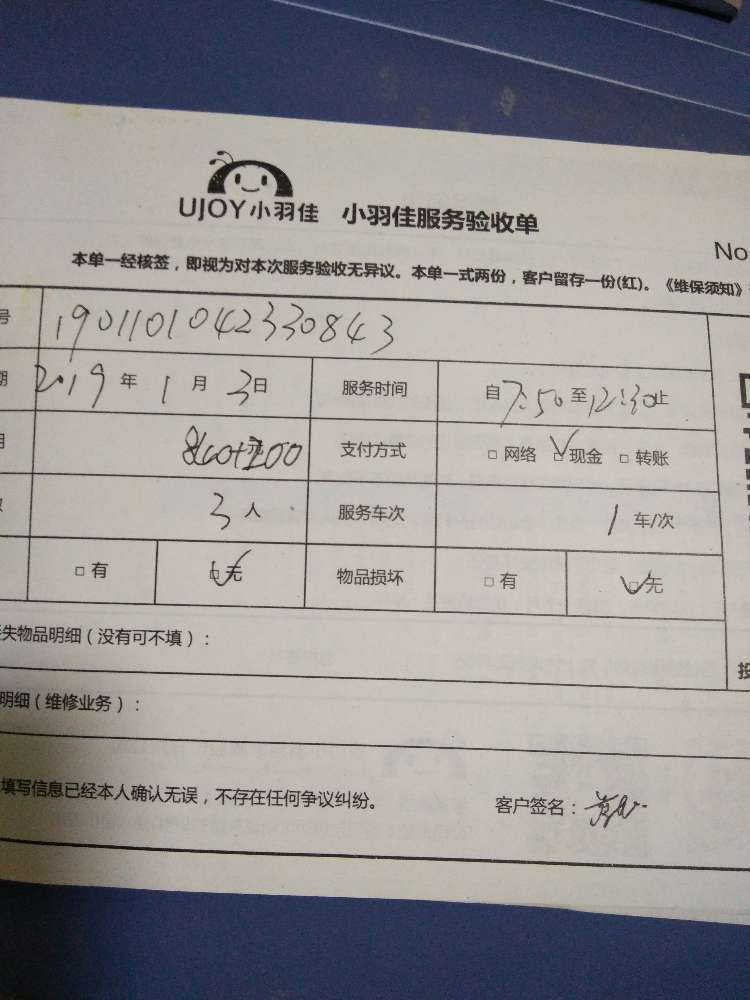 UJOY小羽佳 小羽佳服务验收单
No
本单一经核签，即视为对本次服务验收无异议。本单一式两份，客户留存一份(红)。《维保须知》
号 1901101042330843
期 2019 年 1 月 3 日 服务时间 自 7:50 至 12:30 止
用 支付方式 □ 网络 □ 现金 □ 转账
数 3 人 服务车次 1 车/次
□ 有 □ 无 物品损坏 □ 有 □ 无
失物品明细（没有可不填）：
明细（维修业务）：
填写信息已经本人确认无误，不存在任何争议纠纷。 客户签名：